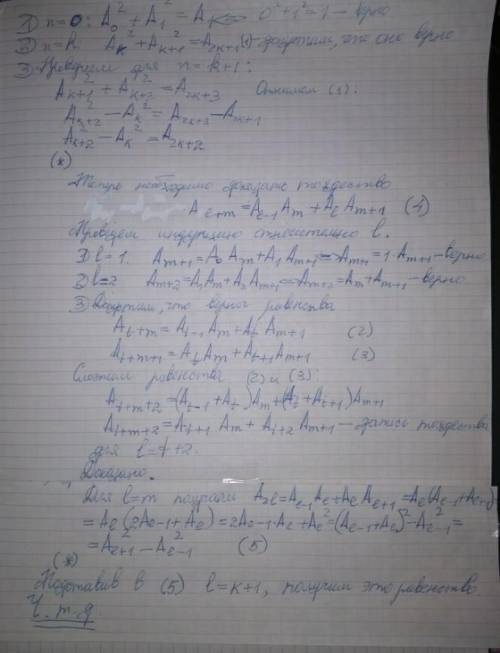 1) n=0: A₀² + A₁² = A₁ <=> 0² + 1² = 1 — верно
2) n=k. A_k² + A_{k+1}² = A_{2k+1} (1) — допустим, что оно верно
3) Проверим для n=k+1:
A_{k+1}² + A_{k+2}² = A_{2k+3} Отнимем (1):
A_{k+2}² - A_k² = A_{2k+3} - A_{2k+1}
A_{k+2}² - A_k² = A_{2k+2}
(*)
Теперь необходимо доказать тождество
A_{l+m} = A_{l-1} A_m + A_l A_{m+1} (4)
Проведем индукцию относительно l.
1) l=1. A_{m+1} = A₀ A_m + A₁ A_{m+1} <=> A_{m+1} = 1·A_{m+1} — верно
2) l=2 A_{m+2} = A₁A_m + A₂A_{m+1} <=> A_{m+2} = A_m + A_{m+1} — верно
3) Допустим, что верно равенства
A_{t+m} = A_{t-1} A_m + A_t A_{m+1} (2)
A_{t+m+1} = A_t A_m + A_{t+1} A_{m+1} (3)
Сложим равенства (2) и (3)
A_{t+m+2} = (A_{t-1} + A_t) A_m + (A_t + A_{t+1}) A_{m+1}
A_{t+m+2} = A_{t+1} A_m + A_{t+2} A_{m+1} — запись тождества
для l=t+2.
Доказано.
Для l=m получим A_{2l} = A_{l-1} A_l + A_l A_{l+1} = A_l (A_{l-1} + A_{l+1}) =
= A_l (2A_{l-1} + A_l) = 2A_{l-1}·A_l + A_l² = (A_{l-1} + A_l)² - A_{l-1}² =
= A_{l+1}² - A_{l-1}² (5)
(*)
Подставив в (5) l=k+1, получим это равенство.
Ч.т.д